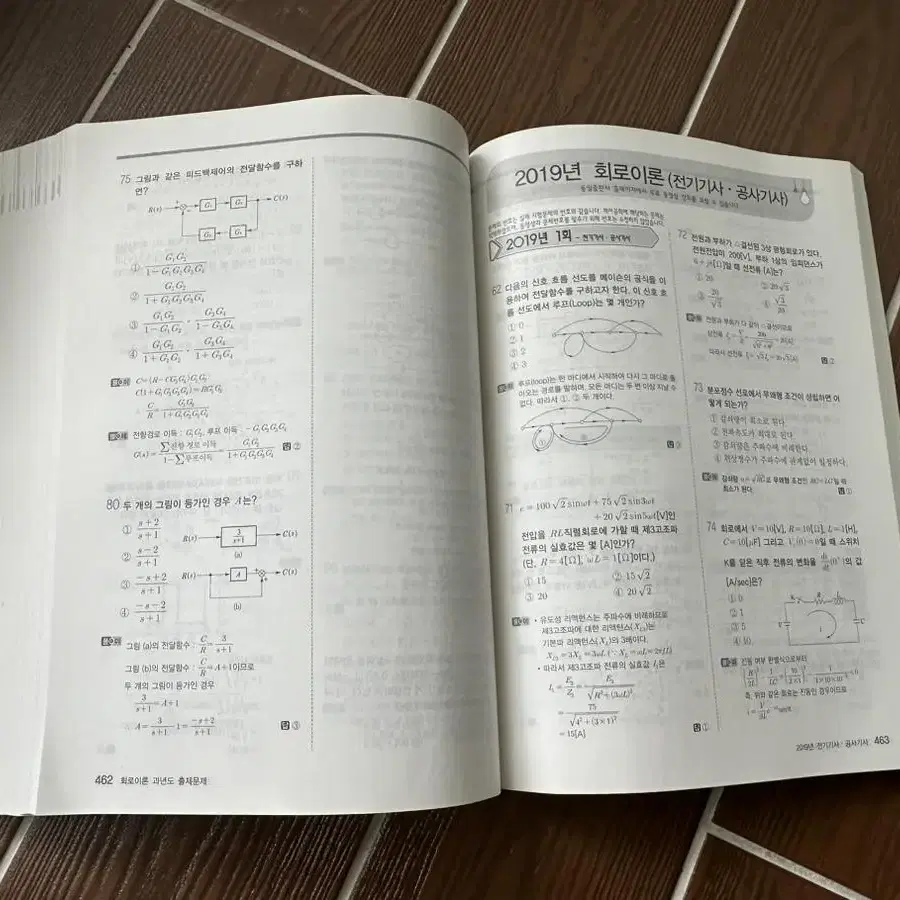 75 그림과 같은 피드백제어의 전달함수를 구하
면?
R(s) G₁ G₂ C(s)
G₄ G₃
① G₁G₂ / 1-G₁G₂G₃G₄
② G₁G₂ / 1+G₁G₂G₃G₄
③ G₁G₂ / 1-G₁G₂ · G₃G₄ / 1-G₃G₄
④ G₁G₂ / 1+G₁G₂ · G₃G₄ / 1+G₃G₄
C(1+G₁G₂G₃G₄)=RG₁G₂
∴ C/R = G₁G₂ / 1+G₁G₂G₃G₄
전향경로 이득 : G₁G₂, 루프 이득 : -G₁G₂G₃G₄
G(s)= ∑전향 경로 이득 / 1-∑루프이득 = G₁G₂ / 1+G₁G₂G₃G₄
답 ②
80 두 개의 그림이 등가인 경우 A는?
① s+2 / s+1
② s-2 / s+1
③ -s+2 / s+1
④ -s-2 / s+1
R(s) 3/s+1 C(s)
(a)
R(s) A C(s)
(b)
그림 (a)의 전달함수 : C/R = 3/s+1
그림 (b)의 전달함수 : C/R = A+1이므로
두 개의 그림이 등가인 경우
3/s+1 = A+1
∴ A = 3/s+1 - 1 = -s+2 / s+1
답 ③
462 회로이론 과년도 출제문제
2019년 회로이론 (전기기사·공사기사)
2019년 1회 - 전기기사·공사기사
62 다음의 신호 흐름 선도를 메이슨의 공식을 이
용하여 전달함수를 구하고자 한다. 이 신호 흐
름 선도에서 루프(Loop)는 몇 개인가?
① 0
② 1
③ 2
④ 3
루프(loop)는 한 마디에서 시작하여 다시 그 마디로 돌
아오는 경로를 말하며, 모든 마디는 두 번 이상 지날 수
없다. 따라서 ①, ② 두 개이다.
① ②
답 ③
71 e = 100√2 sinωt + 75√2 sin3ωt
+ 20√2 sin5ωt[V]인
전압을 RL직렬회로에 가할 때 제3고조파
전류의 실효값은 몇 [A]인가?
(단, R = 4[Ω], ωL = 1[Ω]이다.)
① 15 ② 15√2
③ 20 ④ 20√2
• 유도성 리액턴스는 주파수에 비례하므로
제3고조파에 대한 리액턴스(X_L3)는
기본파 리액턴스(X_L)의 3배이다.
X_L3 = 3X_L = 3ωL (∵ X_L = ωL = 2πfL)
• 따라서 제3고조파 전류의 실효값 I₃은
I₃ = E₃/Z₃ = E₃ / √R²+(3ωL)²
= 75 / √4²+(3×1)²
= 15[A]
답 ①
72 전원과 부하가 △결선된 3상 평형회로가 있다.
전원전압이 200[V], 부하 1상의 임피던스가
6+j8[Ω]일 때 선전류 [A]는?
① 20 ② 20√3
③ 20/√3 ④ √3/20
전원과 부하가 다 같이 △결선이므로
답 ②
73 분포정수 선로에서 무왜형 조건이 성립하면 어
떻게 되는가?
① 감쇠량이 최소로 된다.
② 전파속도가 최대로 된다.
③ 감쇠량은 주파수에 비례한다.
④ 위상정수가 주파수에 관계없이 일정하다.
최소가 된다.
답 ①
74 회로에서 V = 10[V], R = 10[Ω], L = 1[H],
C = 10[μF] 그리고 V_c(0) = 0일 때 스위치
K를 닫은 직후 전류의 변화율 di/dt(0⁺)의 값
[A/sec]은?
① 0
② 1
③ 5
④ 10
K R L
V i C
진동 여부 판별식으로부터
즉, 위와 같은 회로는 진동인 경우이므로
2019년 전기기사·공사기사 463